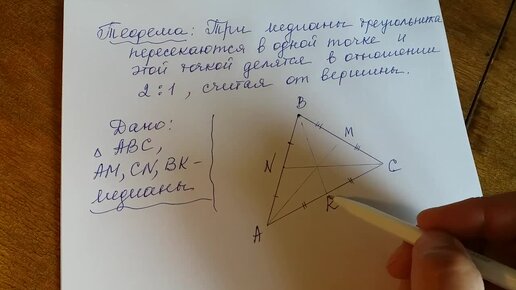 Теорема: Три медианы треугольника
пересекаются в одной точке и
этой точкой делятся в отношении
2:1, считая от вершины.
Дано:
△ ABC,
AM, CN, BK-
медианы
B
M
N
C
K
A